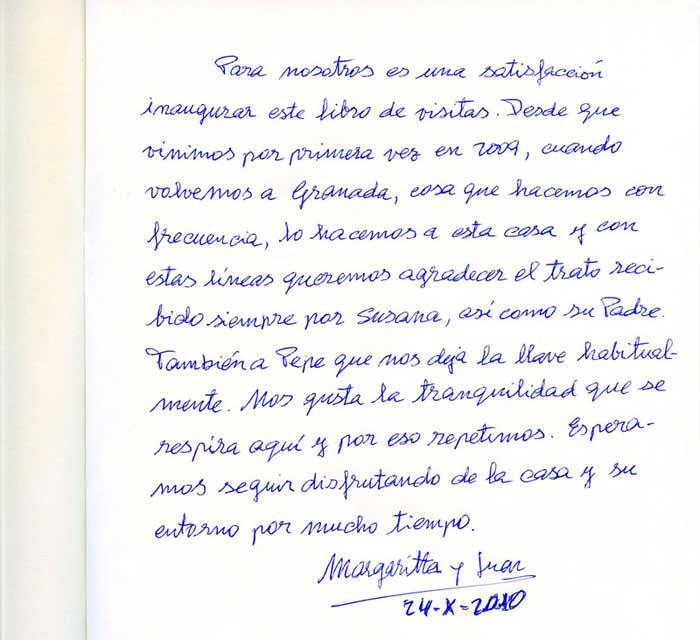 Para nosotros es una satisfacción
inaugurar este libro de visitas. Desde que
vinimos por primera vez en 2009, cuando
volvemos a Granada, cosa que hacemos con
frecuencia, lo hacemos a esta casa y con
estas líneas queremos agradecer el trato reci-
bido siempre por Susana, así como su Padre.
También a Pepe que nos deja la llave habitual-
mente. Nos gusta la tranquilidad que se
respira aquí y por eso repetimos. Espera-
mos seguir disfrutando de la casa y su
entorno por mucho tiempo.
Margaritta y Juan
24-X-2010